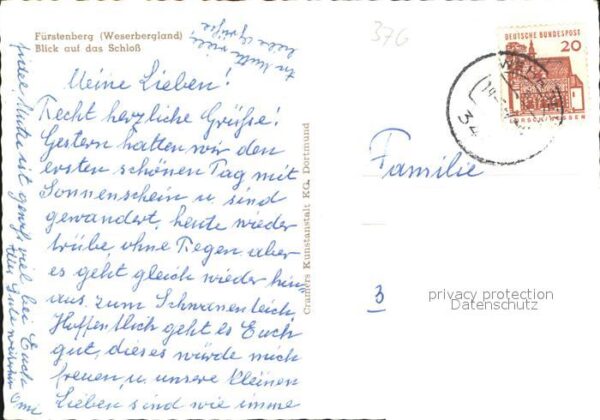 Fürstenberg (Weserbergland)
Blick auf das Schloß
376
Meine Lieben!
Recht herzliche Grüße!
Gestern hatten wir den
ersten schönen Tag mit
Sonnenschein u. sind
gewandert, heute wieder
trübe, ohne Regen, aber
es geht gleich wieder hin-
aus, zum Schwanenteich.
Hoffentlich geht es Euch
gut, dieses würde mich
freuen, u. unsere kleinen
Lieben sind wie imme
ist gewiß viel bei Euch
Alles Gute
Omi
Cramers Kunstanstalt KG. Dortmund
DEUTSCHE BUNDESPOST
20
LORSCH/HESSEN
34
Familie
3
privacy protection
Datenschutz